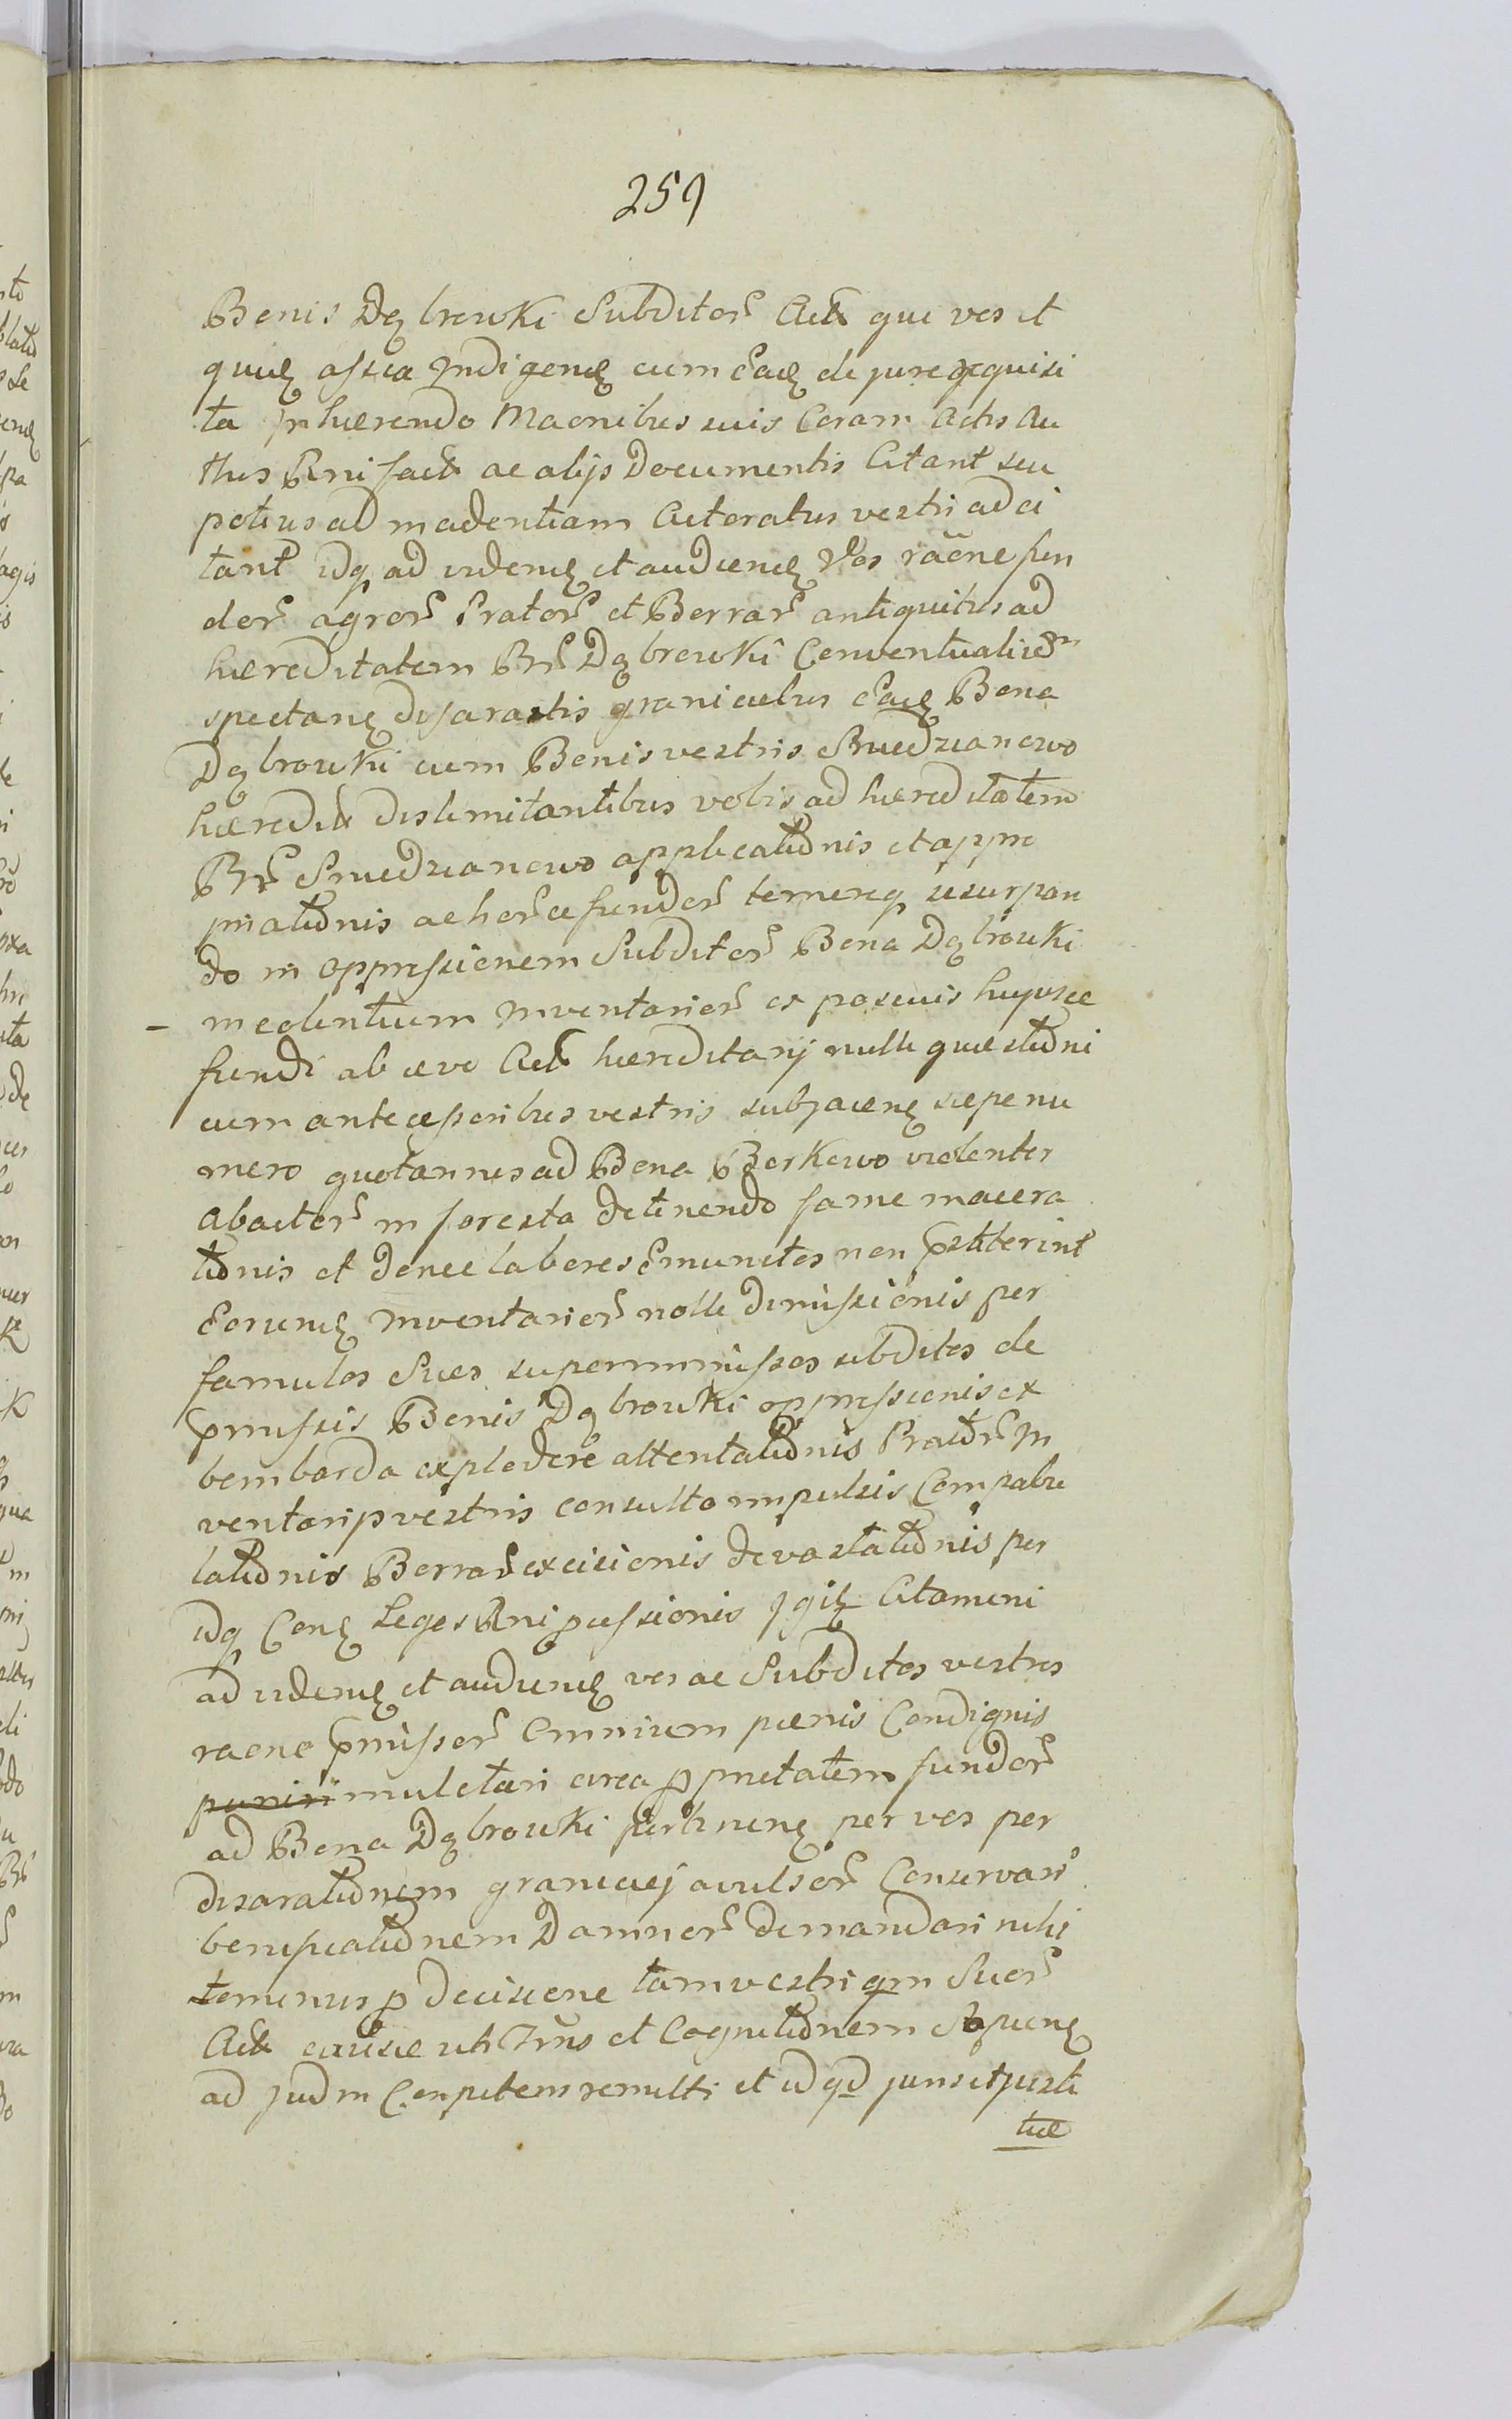 259
Bonis Dąbrowki Subditor Act qui vos et
quūę assea Indigenę cum Eaę de jure requisi
ta Inhærendo Maonibus suis Coram Actis Au
thus Rni fact ac alijs Documentis Citant seu
potius ad madentiam Actoratus vestri ad ci
tant idq ad videnę et audienę Vos raōne fun
dor agror Prator et Borrar antiquitus ad
hæreditatem Br Dąbrowki Conventualium
spectanę disarastis graniciebus Eaę Bona
Dąbrowki cum Bonis vestris Smiedzianowo
hæredit dislimitantibus vobis ad hæreditatem
Br Smiedzianowo applicationis et appro
priationis ac horce fundor temereq usurpan
do in oppressionem Subditor Bona Dąbrowki
incolentium Inventarior ex pascuis hujusce
fundi ab ævo Act hæreditarij nulli quæstioni
cum antecessoribus vestris subjacenę sæpenu
mero quotannis ad Bona Borkowo violenter
abactor in foresta detinendo fame macera
tionis et donec labores Emunctos non præstiterint
Eorunę Inventarior nolle dimissionis per
famulos Suos superimmissos subditos de
præmissis Bonis Dąbrowki oppressionis ex
bombarda explodere attentationis Prator In
ventarijs vestris consulto impulsis Compabu
lationis Borrar excisionis devastationis per
idq Conę Leges Rni pcussionis Igitz Citamini
ad videnę et audienę vos ac Subditos vestros
raone præmissor Omnium pænis Condignis
puniri mulctari circa pprietatem fundor
ad Bona Dąbrowki pertinenę per vos per
disarationem graniciej avulsor Conservari
bonificationem Damnor demandari nihi
lominus p decisione tam vestri qm Suor
Act causæ uti Jrus et Cognitionem Sapienę
ad Judm Conpetens remitti et id qd juris et justi
tiæ